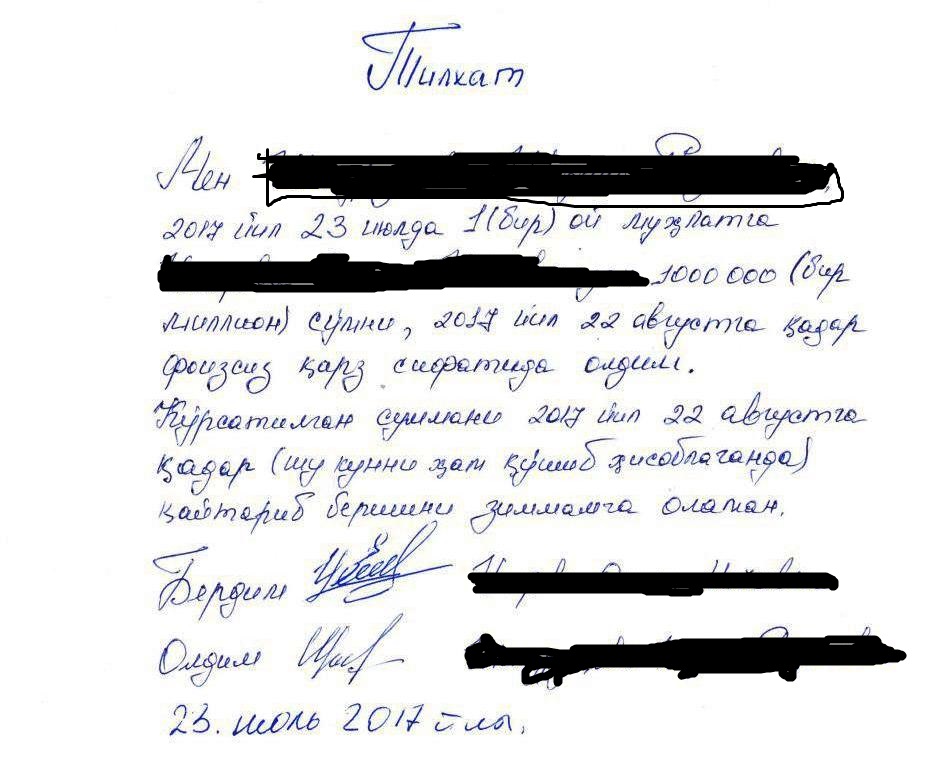 Тилхат
Мен
2017 йил 23 июлда 1(бир) ой муҳлатга
1000 000 (бир
миллион) сўмни, 2017 йил 22 августга қадар
фоизсиз қарз сифатида олдим.
Кўрсатилган суммани 2017 йил 22 августга
қадар (шу кунни ҳам қўшиб ҳисоблаганда)
қайтариб беришни зиммамга оламан.
Бердим
Олдим
23. июль 2017 йил.